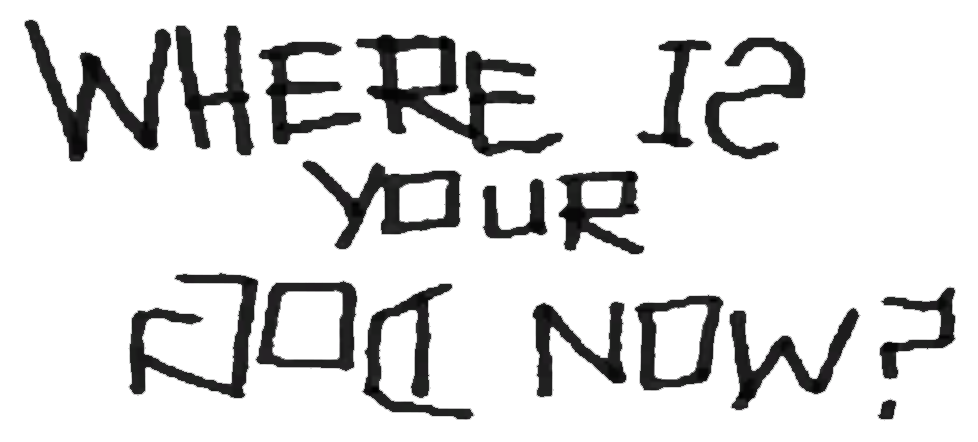 WHERE IS
YOUR
GOD NOW?